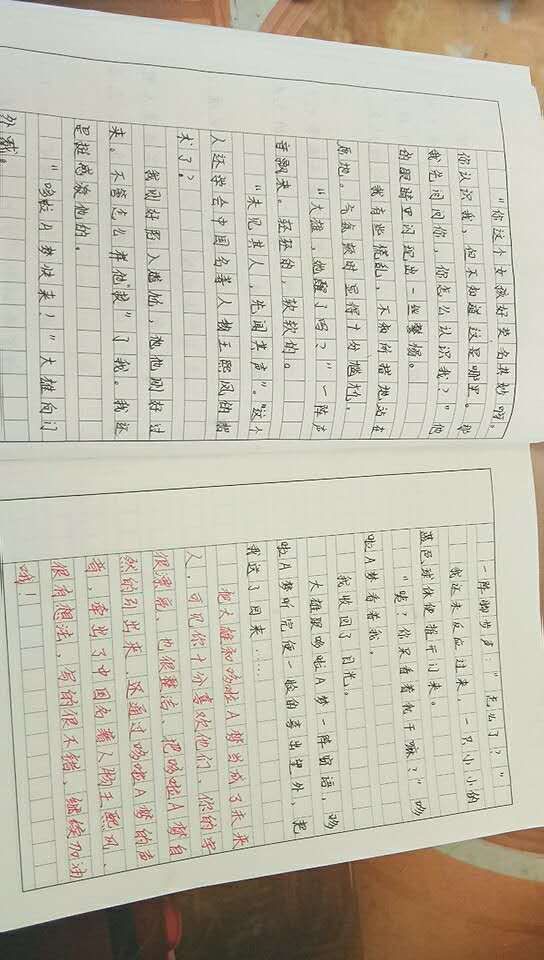 "你这个女孩好莫名其妙哟。
你认识我,但不知道这是哪里。那
我先问问你,你怎么认识我?"他
的眼睛里闪现出一丝警惕。
我有些慌乱,不知所措地站在
原地。气氛顿时显得十分尴尬。
"大雄,她醒了吗?"一阵声
音飘来。轻轻的,软软的。
"未见其人,先闻其声"。这个
人还学会中国名著人物王熙凤的招
术了?
我刚好陷入尴尬,想他刚好过
来。不管怎么样他"救"了我。我还
是挺感激他的。
"哆啦A梦快来!"大雄向门
外喊。
一阵脚步声:"怎么了?"
我还未反应过来,一只小小的
蓝色球体便推开门来。
"咦?你呆看着我干嘛?"哆
啦A梦看着我。
我收回了目光。
大雄跟哆啦A梦一阵窃语,哆
啦A梦听完便一脸的
我送了回来……
把大雄和哆啦A梦当成了未来
人,可见你十分喜欢他们。你的字
很漂亮,也很整洁。把哆啦A梦自
然的引出来,还通过哆啦A梦的声
音,牵出了中国名著人物王熙凤,
很有想法,写的很不错,继续加油
哦!